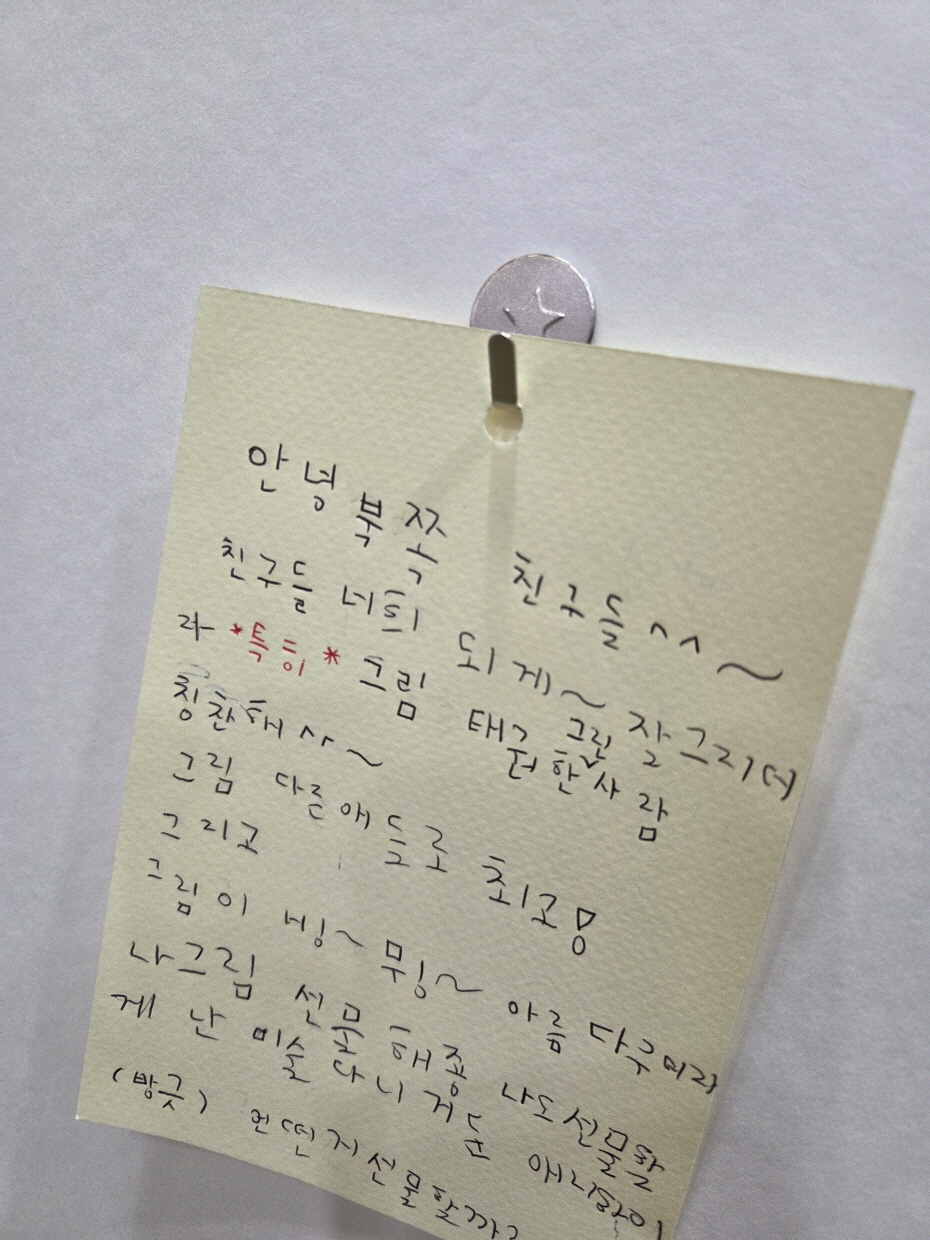 안녕 북쪽 친구들^^~
친구들 너희 되게~ 잘그리더
라 *특히* 그림 태극 그린
더 한 사람
칭찬해^^~
그림 다른애들로 최고!
그리고
그림이 넘~ 무~ 아름 다구마라
나그림 선물 해죵 나도선물할
게 난 미술 다니거든
(방긋) 먼떤지선물할까?